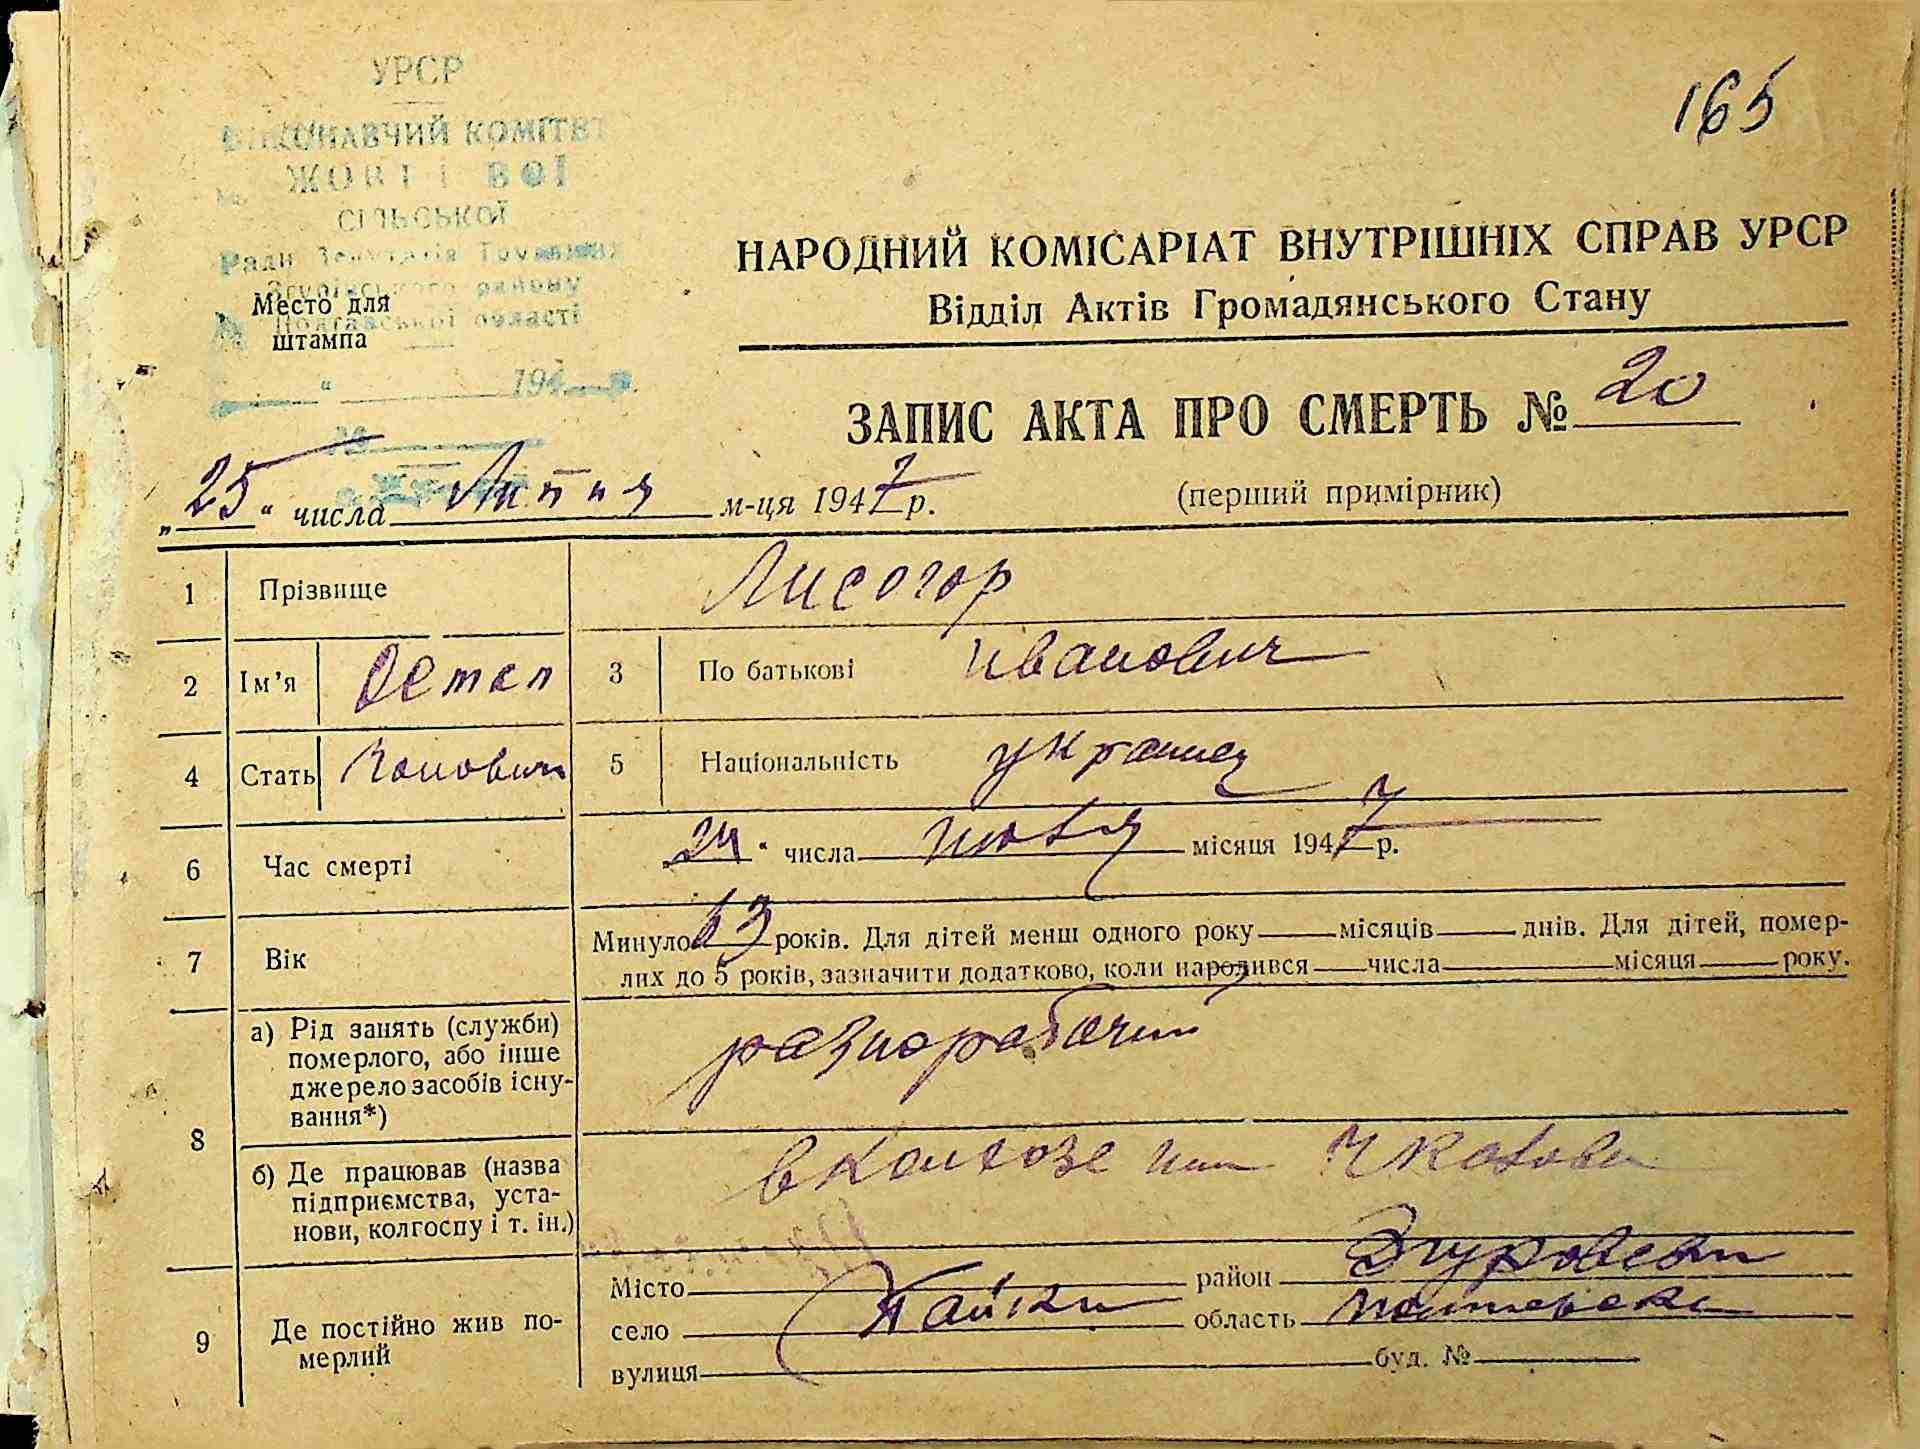 УРСР
ВИКОНАВЧИЙ КОМІТЕТ
СІЛЬСЬКОЇ
Ради Депутатів Трудящих
Згурівського району
Полтавської області
" 194
165
НАРОДНИЙ КОМІСАРІАТ ВНУТРІШНІХ СПРАВ УРСР
Відділ Актів Громадянського Стану
Место для
штампа
ЗАПИС АКТА ПРО СМЕРТЬ № 20
(перший примірник)
„25" числа Липня м-ця 1947 р.
1 Прізвище Лисогор
2 Ім'я Остап 3 По батькові Иванович
4 Стать Чолович 5 Національність украинец
6 Час смерті 24 " числа июля місяця 1947 р.
7 Вік Минуло 63 років. Для дітей менш одного року місяців днів. Для дітей, помер-
лих до 5 років, зазначити додатково, коли народився числа місяця року.
8 а) Рід занять (служби)
померлого, або інше
джерело засобів існу-
вання*)
разнорабочий
б) Де працював (назва
підприємства, уста-
нови, колгоспу і т. ін.)
в колхозе им Чкалова
9 Де постійно жив по-
мерлий
Місто район Згуровски
село область Полтавска
вулиця буд. №